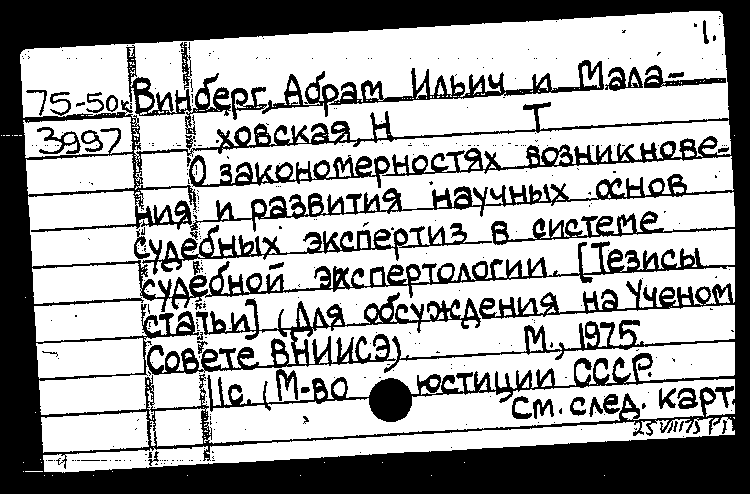 1.
75-50к Винберг, Абрам Ильич и Мала-
3997 ховская, Н Т
О закономерностях возникнове-
ния и развития научных основ
судебных экспертиз в системе
судебной экспертологии. [Тезисы
статьи] (Для обсуждения на Ученом
Совете ВНИИСЭ). М., 1975.
11с. (М-во юстиции СССР.
См. след. карт.
25 VIII 75